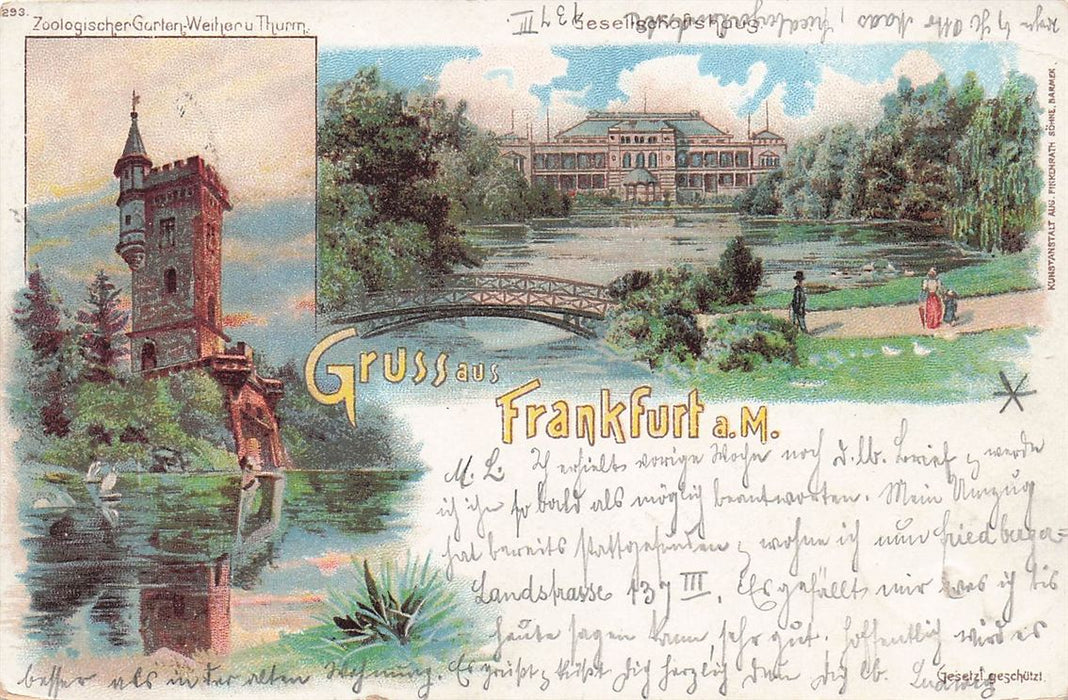 293.
Zoologischer Garten-Weiher u Thurm.
Gesellschaftshaus
Otto Maas, Friedbergerlandstr
137 III.
KUNSTANSTALT AUG. FINKENRATH SÖHNE, BARMEN.
Gruss aus
Frankfurt a.M.
M. L. Ich erhielt vorige Woche noch d. lb. Brief u werde
ich ihn so bald als möglich beantworten. Mein Umzug
hat bereits stattgefunden u wohne ich nun Friedberger=
Landstrasse 137 III. Es gefällt mir was ich bis
heute sagen kann, sehr gut. Hoffentlich wird es
besser als in der alten Wohnung. Es grüßt u küßt Dich herzlich Dein Dich lb. Ludwig
Gesetzl. geschützt.